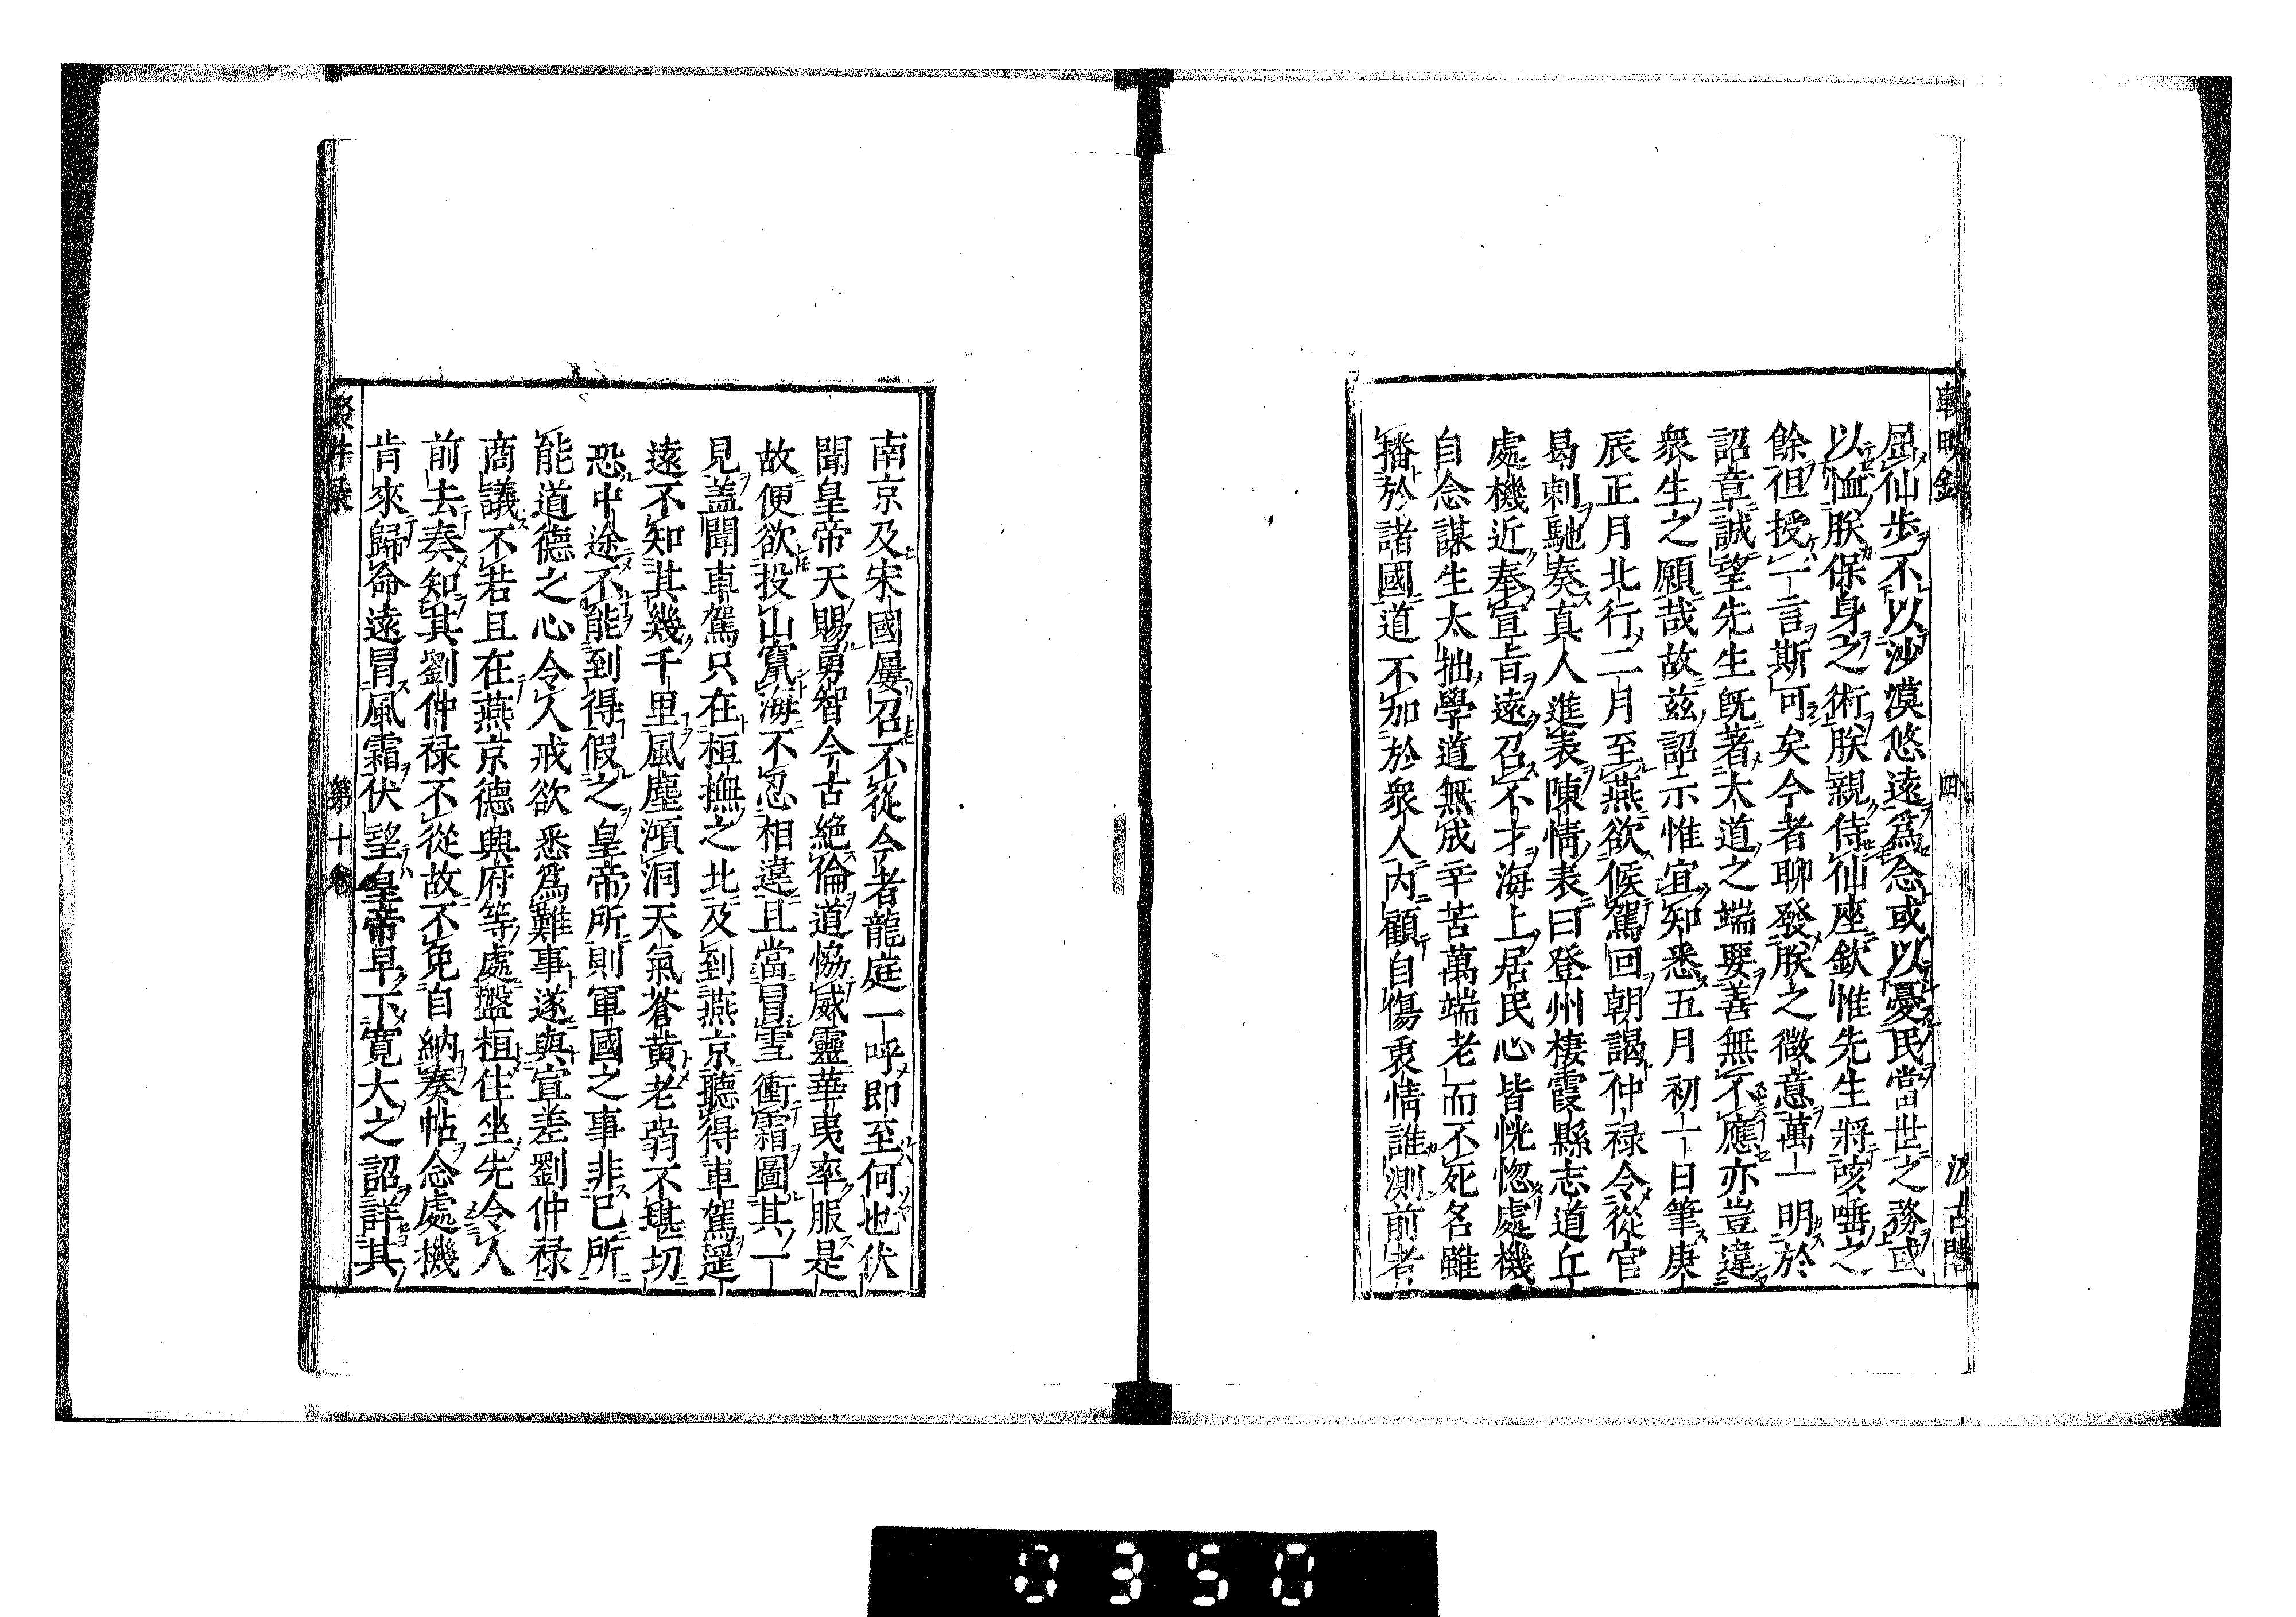 屈仙歩不以沙漠悠遠爲念或以憂民當世之務或
以恤朕保身之術朕親侍仙座欽惟先生將咳唾之
餘但授一言斯可矣今者聊發朕之微意萬一明於
詔章誠望先生既著大道之端要善無不應亦豈違
衆生之願哉故兹詔示惟宜知悉五月初一日筆庚
辰正月北行二月至燕欲候駕回朝謁仲禄令從官
曷剌馳奏真人進表陳情表曰登州棲霞縣志道丘
處機近奉宣旨遠召不才海上居民心皆恍惚處機
自念謀生太拙學道無成辛苦萬端老而不死名雖
播於諸國道不加於衆人内顧自傷衷情誰測前者
四
汲古閣
南京及宋國屢召不從今者龍庭一呼即至何也伏
聞皇帝天賜勇智今古絶倫道恊威靈華夷率服是
故便欲投山竄海不忍相違且當冒雪衝霜圖其一
見蓋聞車駕只在桓撫之北及到燕京聽得車駕遥
遠不知其幾千里風塵澒洞天氣蒼黄老弱不堪切
恐中途不能到得假之皇帝所則軍國之事非已所
能道德之心令人戒欲悉爲難事遂與宣差劉仲禄
商議不若且在燕京德興府等處盤桓住坐先令人
前去奏知其劉仲禄不從故不免自納奏帖念處機
肯來歸命遠冒風霜伏望皇帝早下寛大之詔詳其
第十卷
0350